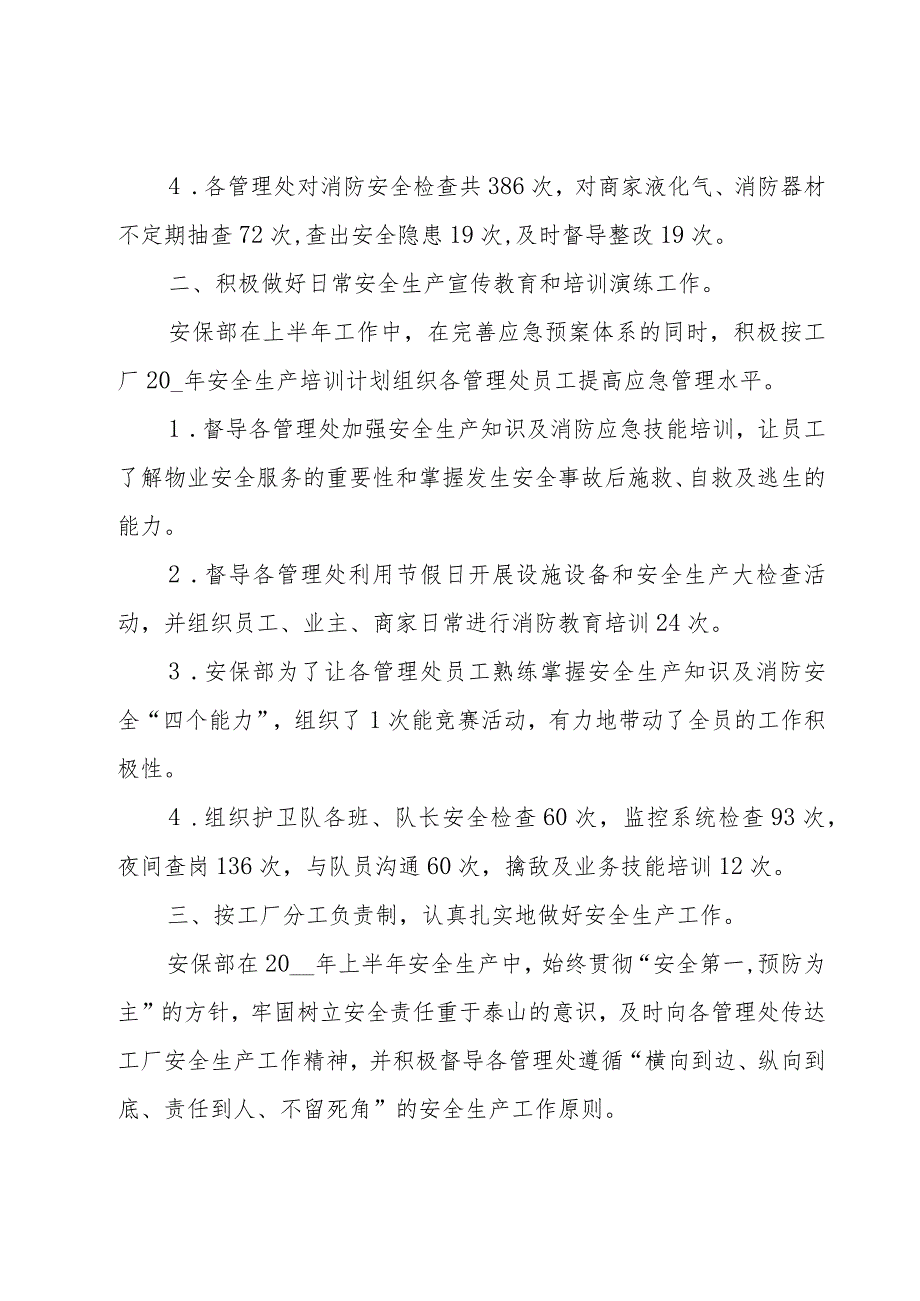 4 .各管理处对消防安全检查共 386 次，对商家液化气、消防器材
不定期抽查 72 次,查出安全隐患 19 次,及时督导整改 19 次。
二、积极做好日常安全生产宣传教育和培训演练工作。
安保部在上半年工作中，在完善应急预案体系的同时，积极按工
厂 20_年安全生产培训计划组织各管理处员工提高应急管理水平。
1 .督导各管理处加强安全生产知识及消防应急技能培训，让员工
了解物业安全服务的重要性和掌握发生安全事故后施救、自救及逃生的
能力。
2 .督导各管理处利用节假日开展设施设备和安全生产大检查活
动，并组织员工、业主、商家日常进行消防教育培训 24 次。
3 .安保部为了让各管理处员工熟练掌握安全生产知识及消防安
全“四个能力”，组织了 1 次能竞赛活动，有力地带动了全员的工作积
极性。
4 .组织护卫队各班、队长安全检查 60 次，监控系统检查 93 次，
夜间查岗 136 次，与队员沟通 60 次，擒敌及业务技能培训 12 次。
三、按工厂分工负责制，认真扎实地做好安全生产工作。
安保部在 20__年上半年安全生产中，始终贯彻“安全第一,预防为
主”的方针，牢固树立安全责任重于泰山的意识，及时向各管理处传达
工厂安全生产工作精神，并积极督导各管理处遵循“横向到边、纵向到
底、责任到人、不留死角”的安全生产工作原则。